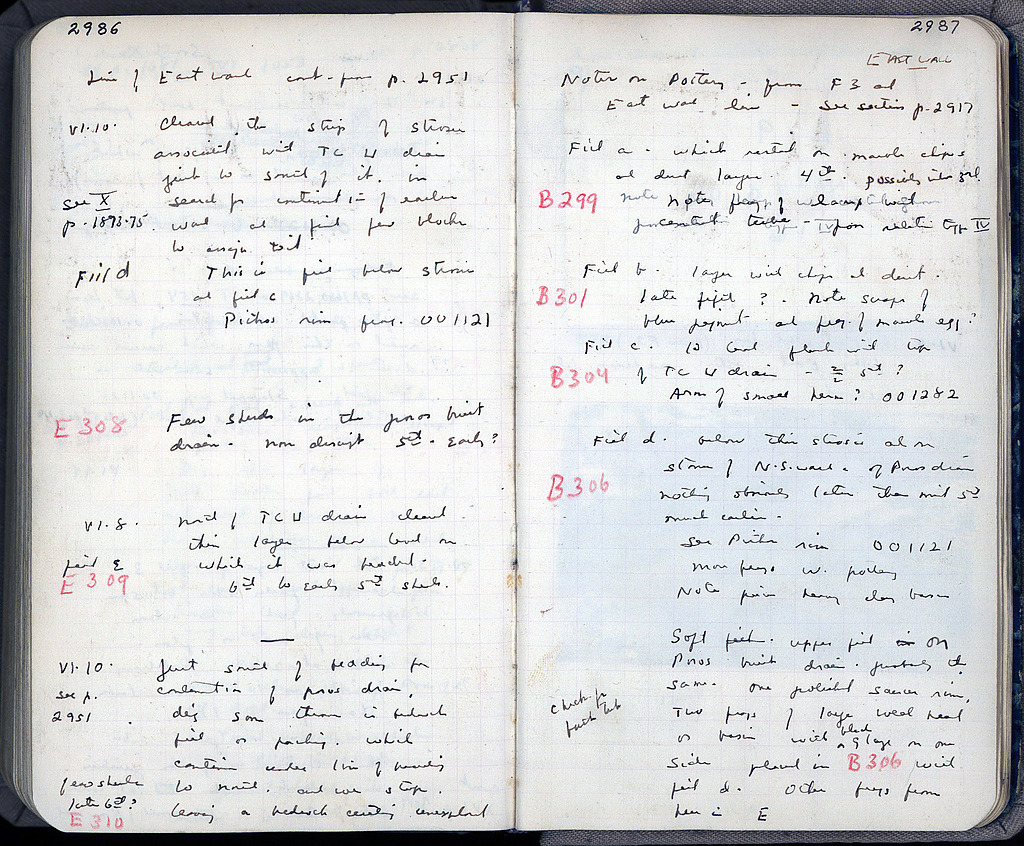 2986
Line of East wall cont. from p. 2951
VI.10. Cleared the strip of stroses
associated with TC W drain
just to south of it. in
see X search for continuation of earlier
p. 1893-75. wall and find few blocks
to assign to it
Fill d This is fill below stroses
and fill c
Pithos rim frag. 001121
E 308 Few sherds in the poros built
drain. non descript 5th. Early?
VI.8. north of TC W drain cleared.
thin layer below level on
fill E which it was bedded.
E 309 6th to Early 5th sherds.
VI.10. Just south of bedding for
see p. continuation of poros drain,
2951. dig some there is bedrock
fill or packing. which
continues under line of bedding
few sherds to north. and we stop.
late 6th? leaving a bedrock cutting unexplored
E 310
2987
EAST WALL
Notes on Pottery - from F3 and
East wall line - see section p. 2917
Fill a. which rested on marble chips
and dust layer. 4th. possibly into 3rd
B299 note Notes frag of
IV from IV
Fill b. layer with chips and dust.
B301 late fifth?. Note scraps of
blue pigment and frag. of marble egg?
Fill c. to level flush with top
B304 of TC W drain - 5th?
Arm of small herm? 001282
Fill d. below this stroses and on
stones of N.S. wall of Poros drain
B306 nothing obviously later than mid 5th
much earlier.
See Pithos rim 001121
many frags w. pottery
Note fine heavy clay basin
Soft fill. upper fill in on
Poros built drain. probably the
same. one polished saucer rim,
check for Two frags of large
or basin with black glaze on one
side placed in B306 with
fill d. Other frags from
here in E